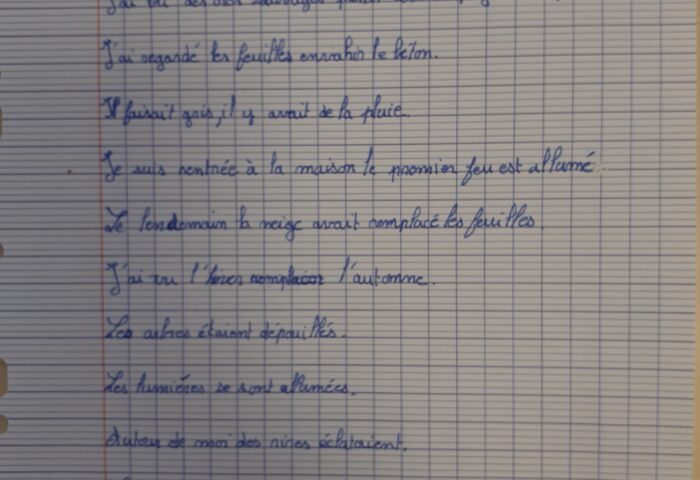 J'ai vu des oies sauvages
J'ai regardé les feuilles envahir le béton.
Il faisait gris, il y avait de la pluie.
Je suis rentrée à la maison le premier feu est allumé.
Le lendemain la neige avait remplacé les feuilles.
J'ai vu l'hiver remplacer l'automne.
Les arbres étaient dépouillés.
Les lumières se sont allumées.
Autour de moi des rires éclataient.